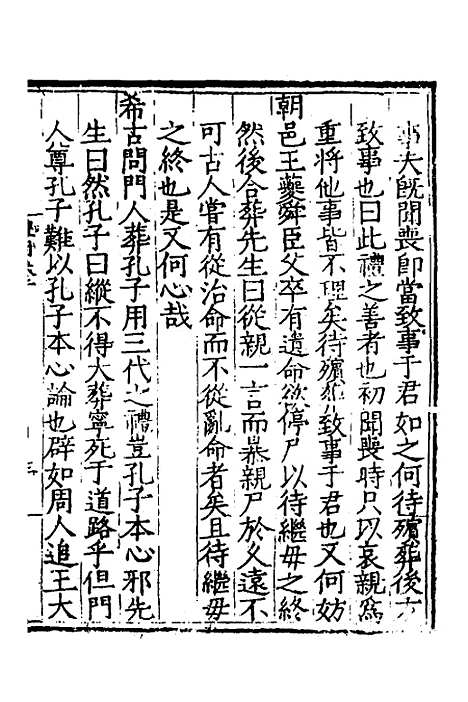 事夫既聞喪即當致事于君如之何待殯葬後方
致事也曰此禮之善者也初聞喪時只以哀親為
重將他事皆不理矣待殯後致事于君也又何妨
朝邑王夔舜臣父卒有遺命欲停尸以待繼母之終
然後合葬先生曰從親一言而暴親尸於久遠不
可古人嘗有從治命而不從亂命者矣且待繼母
之終也是又何心哉
希古問門人葬孔子用三代之禮豈孔子本心邪先
生曰然孔子曰縱不得大葬寧死于道路乎但門
人尊孔子難以孔子本心論也辟如周人追王大